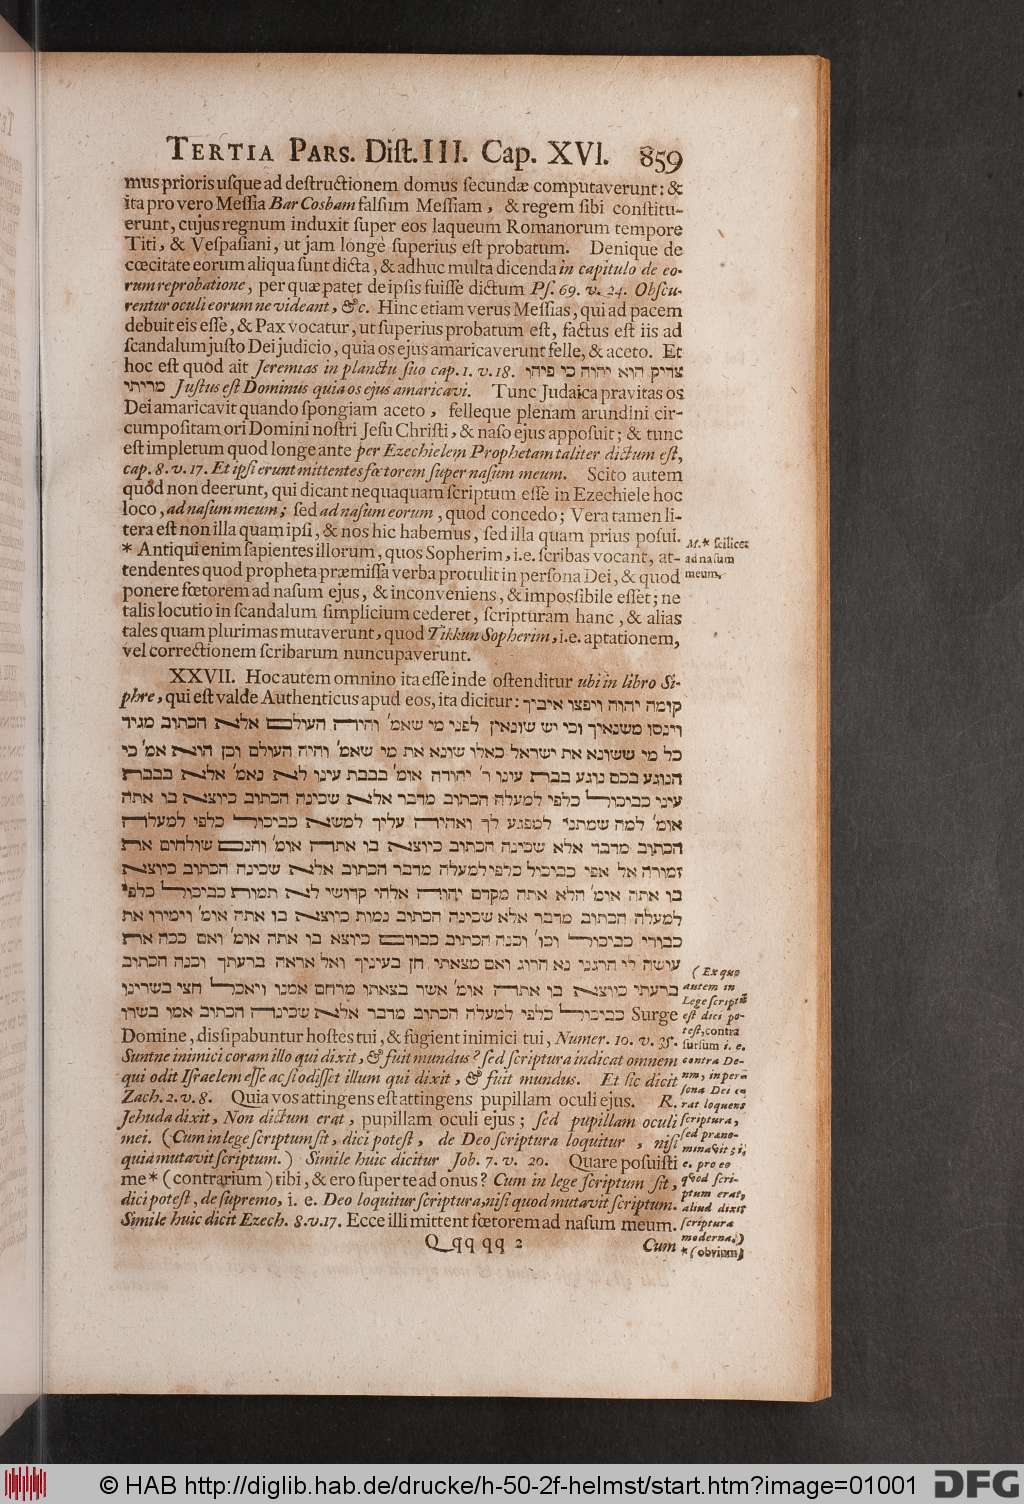 TERTIA PARS. Diſt. III. Cap. XVI. 859
mus prioris uſque ad deſtructionem domus ſecundæ computaverunt: &
ita pro vero Meſſia Bar Cosbam falſum Meſſiam, & regem ſibi conſtitu-
erunt, cujus regnum induxit ſuper eos laqueum Romanorum tempore
Titi, & Veſpaſiani, ut jam longè ſuperius eſt probatum. Denique de
cœcitate eorum aliqua ſunt dicta, & adhuc multa dicenda in capitulo de eo-
rum reprobatione, per quæ patet de ipſis fuiſſe dictum Pſ. 69. v. 24. Obſcu-
rentur oculi eorum ne videant, &c. Hinc etiam verus Meſſias, qui ad pacem
debuit eis eſſe, & Pax vocatur, ut ſuperius probatum eſt, factus eſt iis ad
ſcandalum juſto Dei judicio, quia os ejus amaricaverunt felle, & aceto. Et
hoc eſt quod ait Jeremias in planctu ſuo cap. 1. v. 18. צדיק הוא יהוה כי פיהו
מריתי Juſtus eſt Dominus quia os ejus amaricavi. Tunc Judaica pravitas os
Dei amaricavit quando ſpongiam aceto, felleque plenam arundini cir-
cumpoſitam ori Domini noſtri Jeſu Chriſti, & naſo ejus appoſuit; & tunc
eſt impletum quod longe ante per Ezechielem Prophetam taliter dictum eſt,
cap. 8. v. 17. Et ipſi erunt mittentes fœtorem ſuper naſum meum. Scito autem
quòd non deerunt, qui dicant nequaquam ſcriptum eſſe in Ezechiele hoc
loco, ad naſum meum; ſed ad naſum eorum, quod concedo; Vera tamen li-
tera eſt non illa quam ipſi, & nos hic habemus, ſed illa quam prius poſui.
* Antiqui enim ſapientes illorum, quos Sopherim, i.e. ſcribas vocant, at-
tendentes quod propheta præmiſſa verba protulit in perſona Dei, & quod
ponere fœtorem ad naſum ejus, & inconveniens, & impoſſibile eſſet; ne
talis locutio in ſcandalum ſimplicium cederet, ſcripturam hanc, & alias
tales quam plurimas mutaverunt, quod Tikkun Sopherim, i.e. aptationem,
vel correctionem ſcribarum nuncupaverunt.
M. * ſcilicet
ad naſum
meum,
XXVII. Hoc autem omnino ita eſſe inde oſtenditur ubi in libro Si-
phre, qui eſt valde Authenticus apud eos, ita dicitur: קומה יהוה ויפצו איביך
וינסו משנאיך וכי יש שונאין לפני מי שאמ׳ והיה העולם אלא הכתוב מגיד
כל מי ששונא את ישראל כאלו שונא את מי שאמ׳ והיה העולם וכן הוא אמ׳ כי
הנוגע בכם נוגע בבבת עינו ר׳ יהודה אומ׳ בבבת עינו לא נאמ׳ אלא בבבת
עיני כביכול כלפי למעלה הכתוב מדבר אלא שכינה הכתוב כיוצא בו אתה
אומ׳ למה שמתני למפגע לך ואהיה עליך למשא כביכול כלפי למעלה
הכתוב מדבר אלא שכינה הכתוב כיוצא בו אתה אומ׳ והנם שולחים את
זמורה אל אפי כביכיל כלפי למעלה מדבר הכתוב אלא שכינה הכתוב כיוצא
בו אתה אומ׳ הלא אתה מקדם יהוה אלהי קדושי לא תמות כביכול כלפי
למעלה הכתוב מדבר אלא שכינה הכתוב נמות כיוצא בו אתה אומ׳ וימירו את
כבודי כביכול וכו׳ וכנה הכתוב כבודם כיוצא בו אתה אומ׳ ואם ככה את
עושה לי הרגני נא הרוג ואם מצאתי חן בעיניך ואל אראה ברעתך וכנה הכתוב
ברעתי כיוצא בו אתה אומ׳ אשר בצאתו מרחם אמנו ויאכל חצי בשרינו
כביכול כלפי למעלה הכתוב מדבר אלא שכינה הכתוב אמו בשרו Surge
Domine, diſſipabuntur hoſtes tui, & fugient inimici tui, Numer. 10. v. 35.
Suntne inimici coram illo qui dixit, & fuit mundus? ſed ſcriptura indicat omnem
qui odit Iſraelem eſſe ac ſi odiſſet illum qui dixit, & fuit mundus. Et ſic dicit
Zach. 2. v. 8. Quia vos attingens eſt attingens pupillam oculi ejus. R.
Jehuda dixit, Non dictum erat, pupillam oculi ejus; ſed pupillam oculi
mei. (Cum in lege ſcriptum ſit, dici poteſt, de Deo ſcriptura loquitur, niſi
quia mutavit ſcriptum.) Simile huic dicitur Job. 7. v. 20. Quare poſuiſti
me * (contrarium) tibi, & ero ſuper te ad onus? Cum in lege ſcriptum ſit,
dici poteſt, de ſupremo, i. e. Deo loquitur ſcriptura, niſi quod mutavit ſcriptum.
Simile huic dicit Ezech. 8. v. 17. Ecce illi mittent fœtorem ad naſum meum.
(Ex quo
autem in
Lege ſcriptū
eſt dici po-
teſt, contra
ſurſum i. e.
contra De-
um, in per-
ſona Dei e-
rat loquens
ſcriptura,
ſed prano-
minavit; i.
e. pro eo
quod ſcri-
ptum erat,
aliud dixit
ſcriptura
moderna.)
* (obvium)
Qqq qq 2
Cum
© HAB http://diglib.hab.de/drucke/h-50-2f-helmst/start.htm?image=01001
DFG